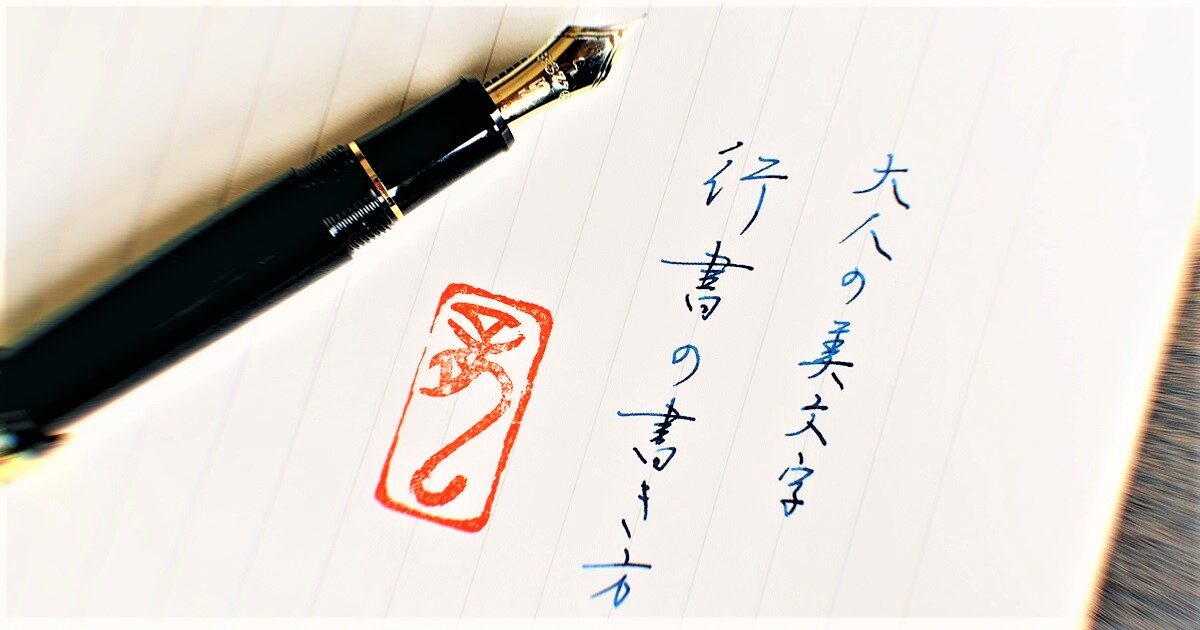 大人の美文字
行書の書き方